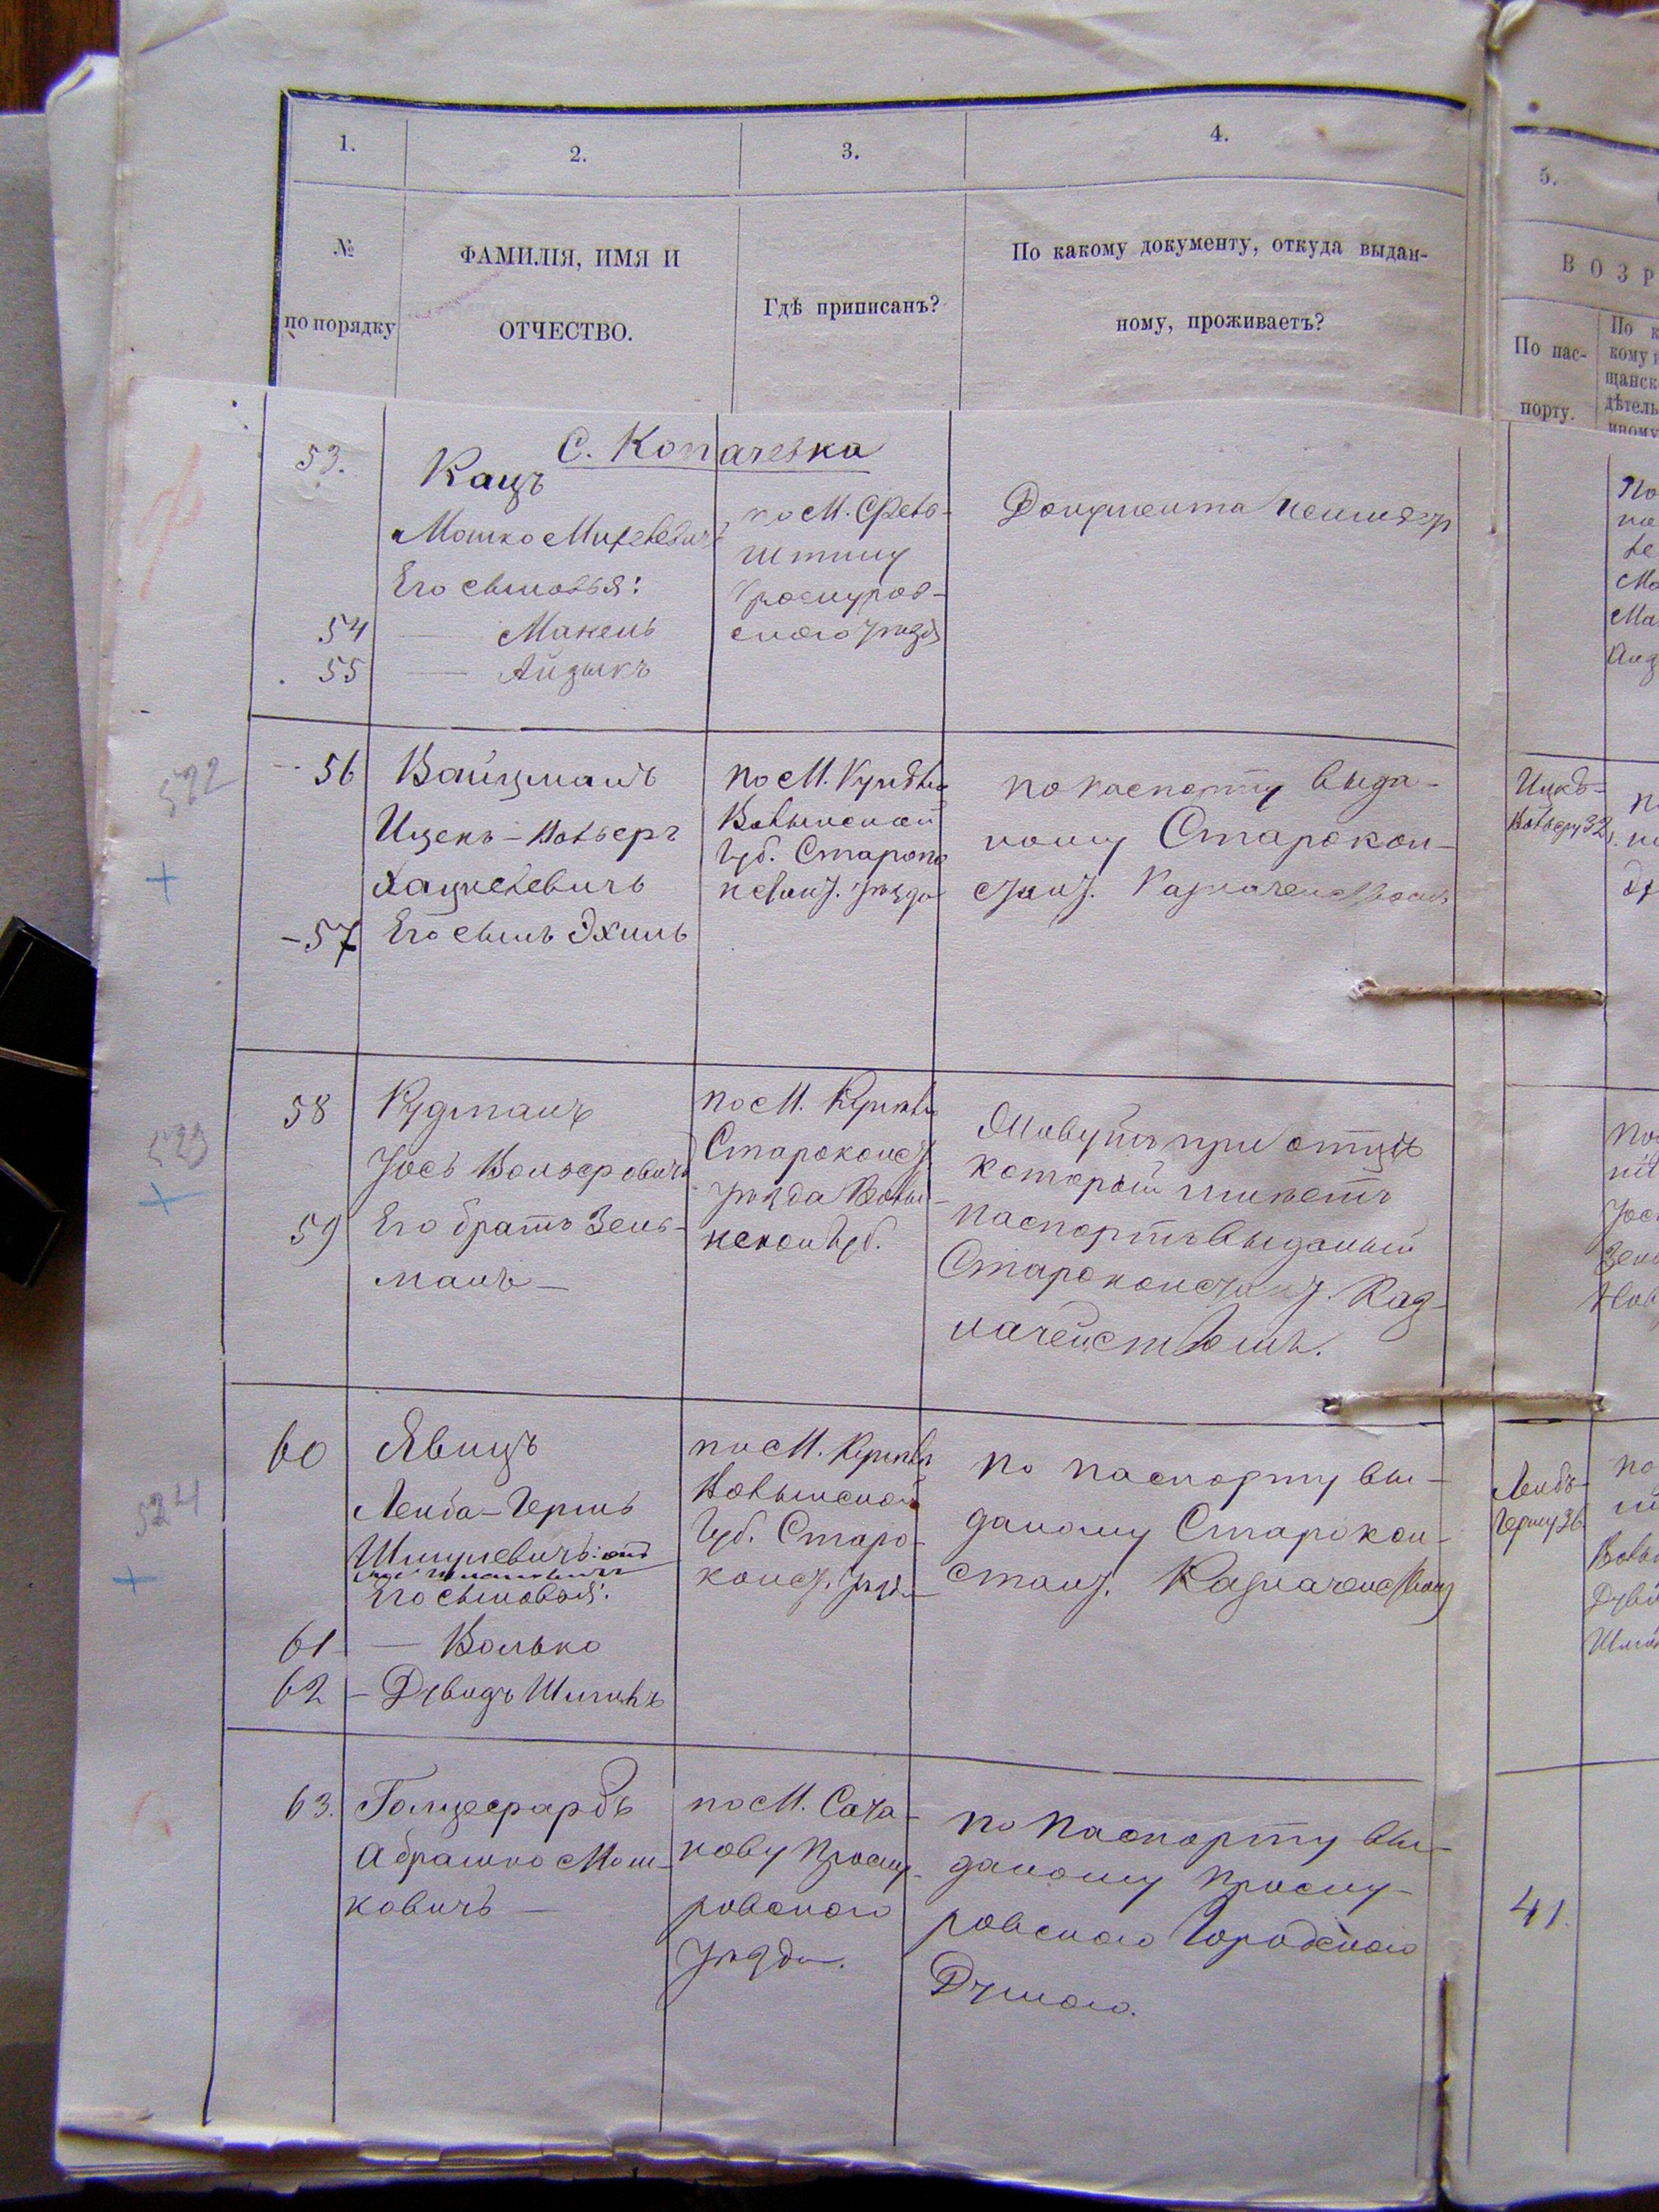 1.
2.
3.
4.
5.
№
по порядку
ФАМИЛІЯ, ИМЯ И
ОТЧЕСТВО.
Гдѣ приписанъ?
По какому документу, откуда выдан-
ному, проживаетъ?
ВОЗР
По пас-
порту.
По к
кому
щанск
дѣтель
иному
С. Копачевка
53.
Кацъ
Мошко
Его сыновья:
54 — Манель
55 — Айзыкъ
по М.
штину
Проскуров-
скаго уѣзда
Документа неимѣетъ
522
56 Вайцманъ
Ицекъ-Вольверъ
Хацкелевичъ
-57 Его сынъ Эхиль
по М.
Волынской
Губ. Староко
нстант. уѣзда
по паспорту выда-
ному Старокон-
стант. Казначействомъ
Ицкѣ-
Вольверу 32
523
58 Кудманъ
Іось Вольверовичъ
59 Его братъ Зель-
манъ —
по М.
Староконст.
уѣзда Волы-
нской Губ.
Живутъ при отцѣ
который имѣетъ
паспортъ выданый
Староконстант. Каз-
начействомъ.
524
60 Явицъ
Лейба-Герш
Шмулевичъ
Его сыновья:
61 — Волько
62 — Дувидъ
по М.
Волынской
Губ. Старо-
конст. уѣзда
по паспорту вы-
даному Старокон-
стант. Казначейством
Лейбѣ-
Гершу 36
63. Гольцефарбъ
Абрашко Мош-
ковичъ —
по М. Сата-
нову Проску-
ровскаго
уѣзда.
по паспорту вы-
даному Проску-
ровскою Городскою
Думою.
41.